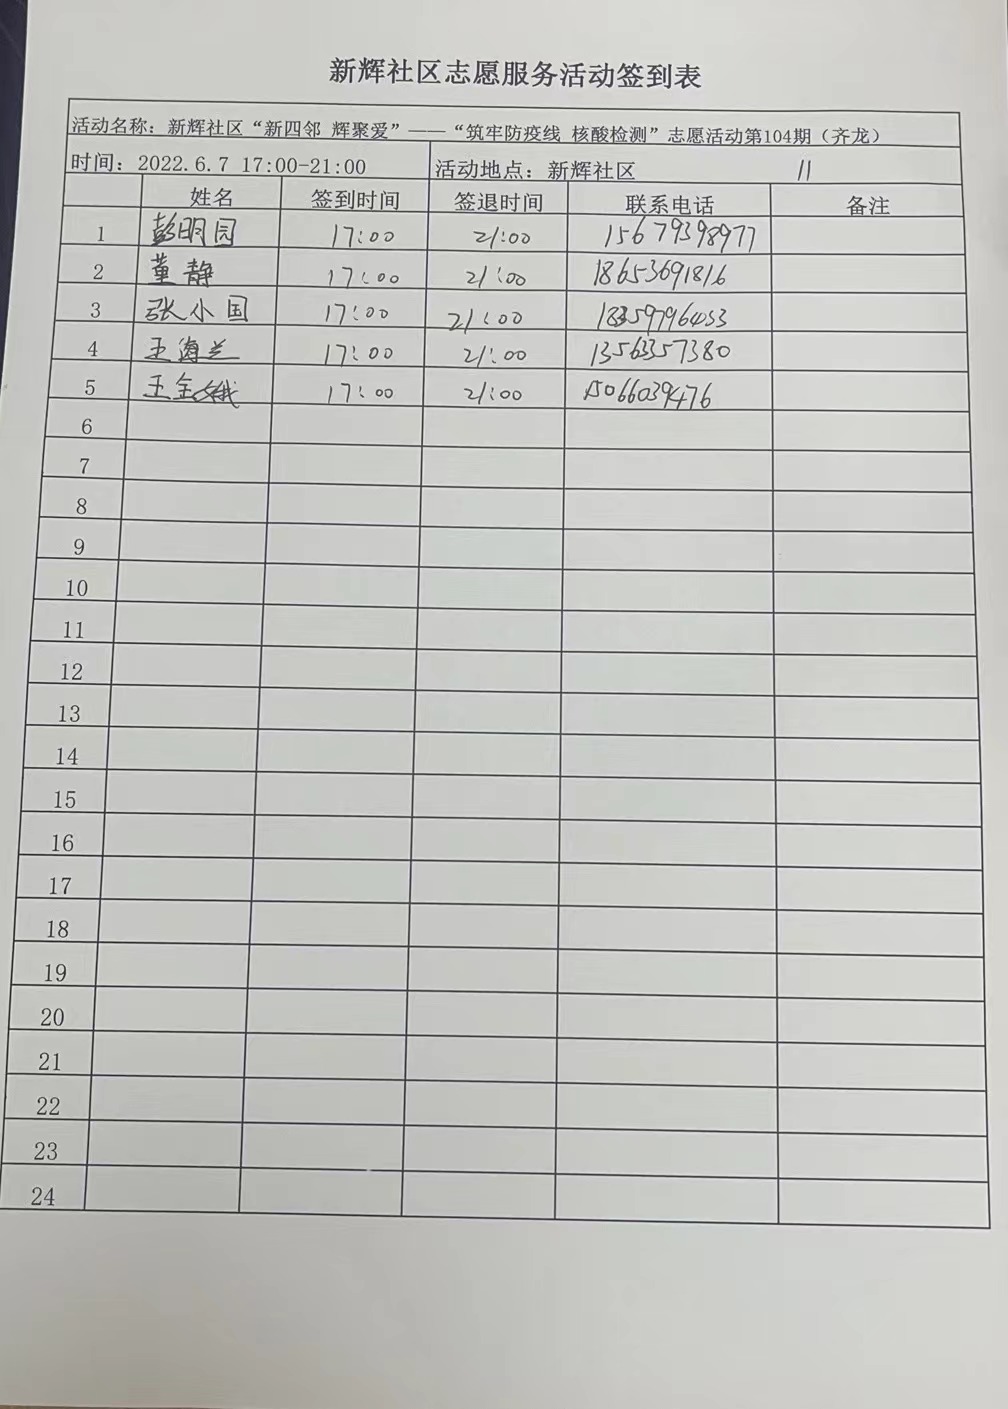 新辉社区志愿服务活动签到表
活动名称：新辉社区“新四邻 辉聚爱”——“筑牢防疫线 核酸检测”志愿活动第104期（齐龙）
时间：2022.6.7 17:00-21:00 活动地点：新辉社区 11
姓名 签到时间 签退时间 联系电话 备注
1 彭明园 17:00 21:00 15679398977
2 董静 17:00 21:00 18653691816
3 张小国 17:00 21:00
4 王海兰 17:00 21:00 13563357380
5 王金娥 17:00 21:00 15066039476
6
7
8
9
10
11
12
13
14
15
16
17
18
19
20
21
22
23
24